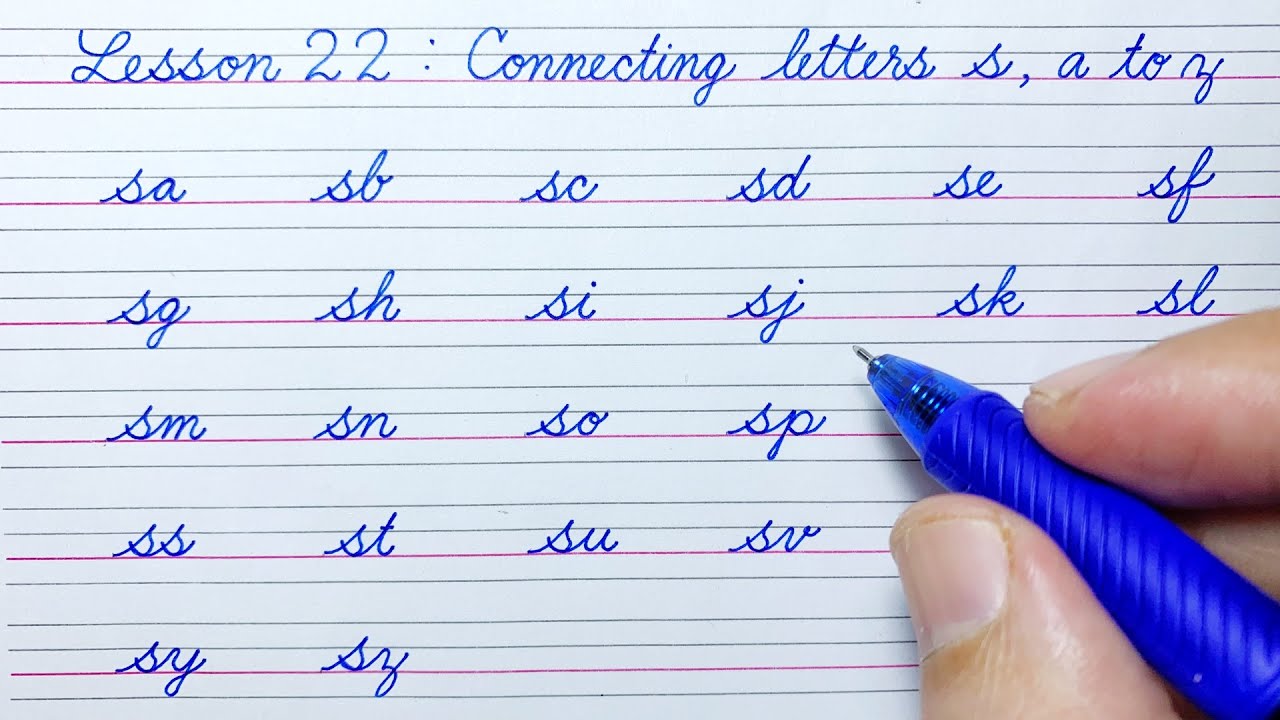 Lesson 22 : Connecting letters s, a to z
sa sb sc sd se sf
sg sh si sj sk sl
sm sn so sp
ss st su sv
sy sz